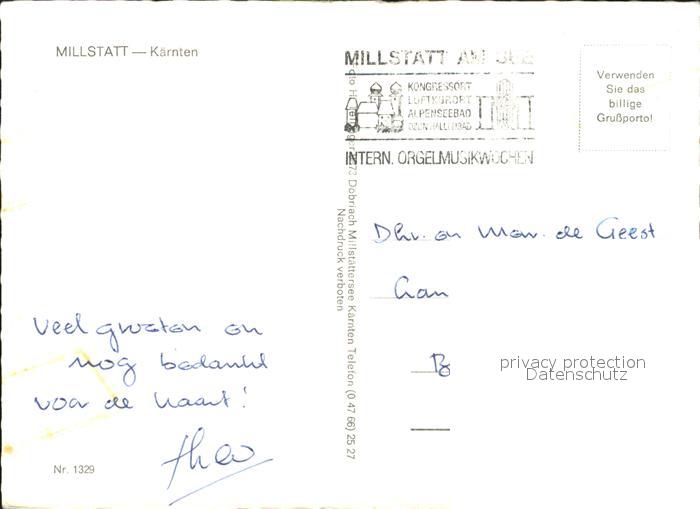 MILLSTATT — Kärnten
MILLSTATT AM SEE
KONGRESSORT
LUFTKURORT
ALPENSEEBAD
INTERN. ORGELMUSIKWOCHEN
Verwenden
Sie das
billige
Grußporto!
73 Döbriach Millstättersee Kärnten Telefon (0 47 66) 25 27
Nachdruck verboten
Dhr. en Mevr. de Geest
privacy protection
Datenschutz
Veel groeten en
nog bedankt
voor de kaart!
Theo
Nr. 1329